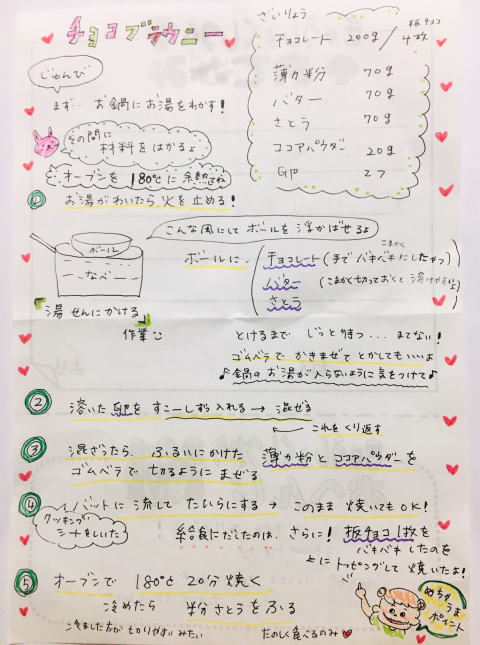 チョコブラウニー
ざいりょう
チョコレート 200g / 板チョコ 4枚
薄力粉 70g
バター 70g
さとう 70g
ココアパウダー 20g
卵 2コ
じゅんび
まず… お鍋にお湯をわかす!
その間に
材料をはかるよ
オーブンを 180℃に余熱してね
① お湯がわいたら火を止める!
こんな風にしてボールを浮かばせるよ
ボール
なべ
ボールに、
こまかく
チョコレート(手でバキバキにしたやつ)
バター (こまかく切っておくと溶けやすいよ)
さとう
「湯せんにかける」
作業
とけるまで じっと待つ....までない!
ゴムベラで かきまぜて とかしてもいいよ
♪鍋のお湯が入らないように気をつけて♪
② 溶いた卵を すこーしずつ入れる → 混ぜる
これをくり返す
③ 混ざったら、ふるいにかけた 薄力粉とココアパウダーを
ゴムベラで切るようにまぜる
④ バットに流して たいらにする → このまま焼いてもOK!
クッキング
シートをしいた
給食にだしたのは、さらに! 板チョコ1枚を
バキバキしたのを
上にトッピングして焼いたよ!
⑤ オーブンで 180℃ 20分 焼く
冷めたら 粉さとうをふる
めちゃ
うま
ポイント
冷ました方がもりやすいみたい
たのしく食べるのみ